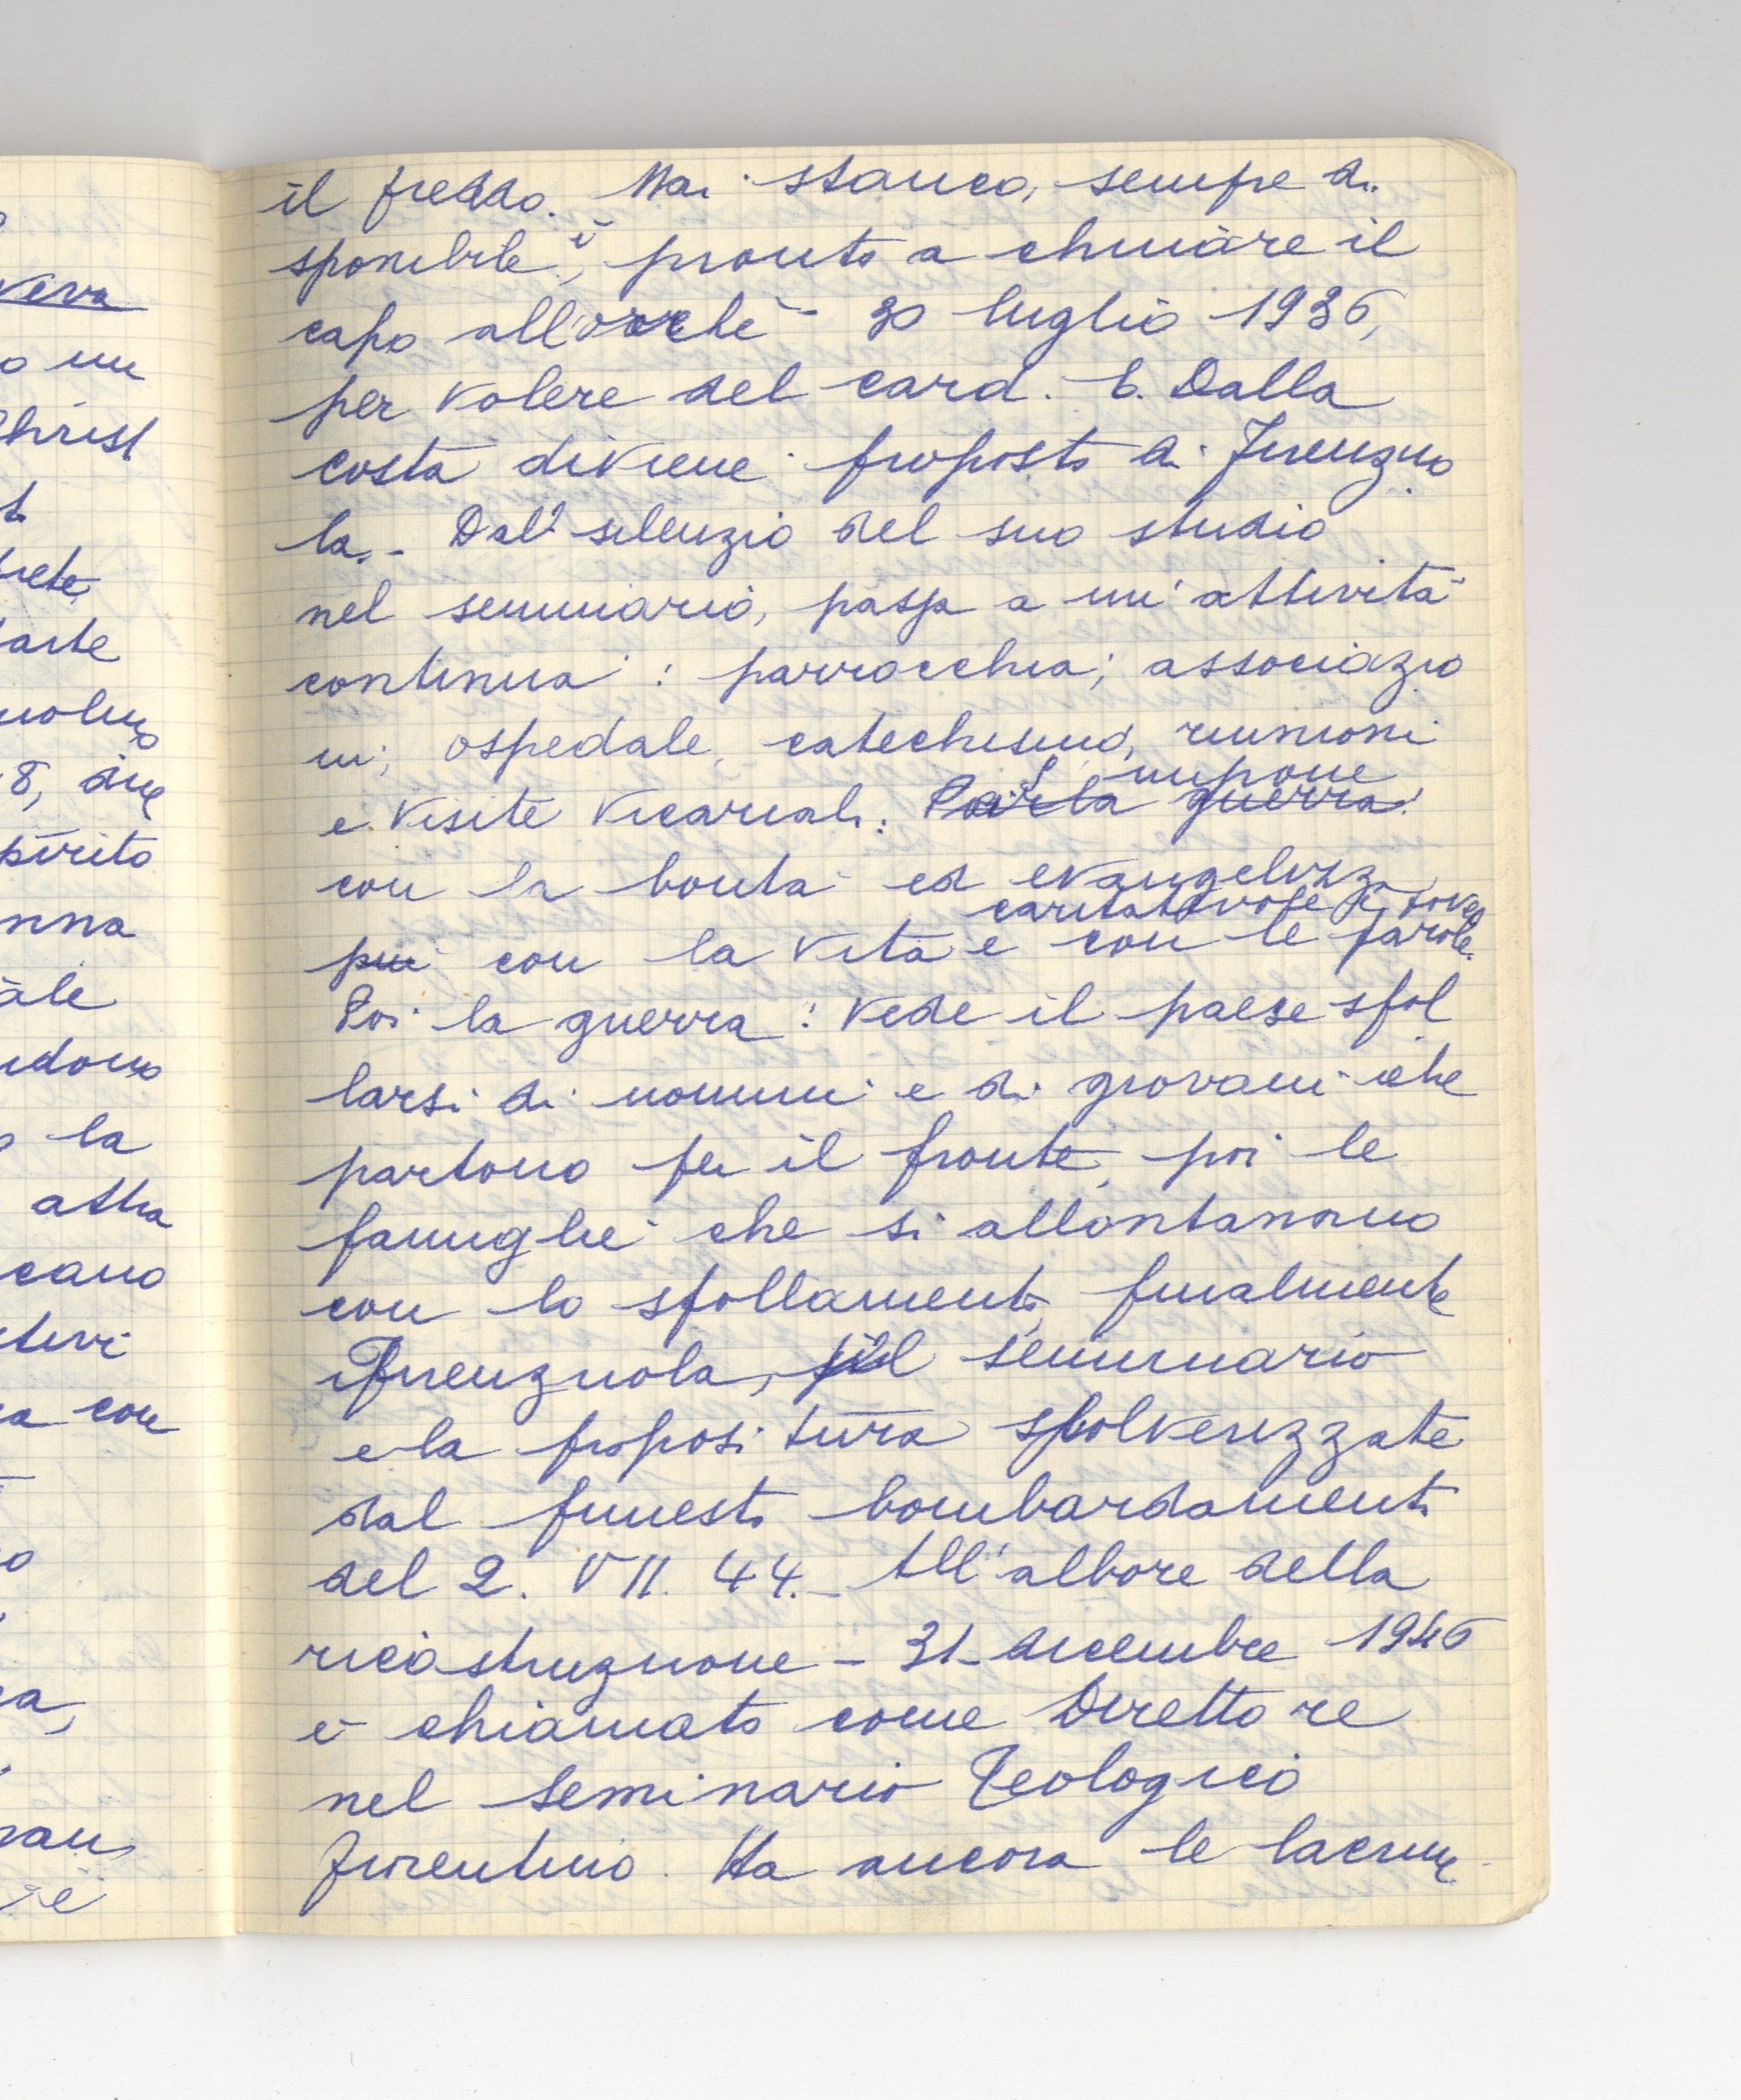 veva
o un
Christ
arte
8, due
pirito
nna
ale
o la
cano
a con
il freddo. Mai stanco, sempre di
sponibile, è pronto a chinare il
capo all'orchè - 30 luglio 1936,
per volere del card. E. Dalla
Costa diviene proposto di Firenzuo
la. - Dal silenzio del suo studio
nel seminario, passa a un'attività
continua: parrocchia; associazio
ni; ospedale, catechismo, riunioni
e visite vicariali. Poi la guerra.
S'impone
con la bontà ed evangelizza
più con la vita e con le parole.
caritatevole
Poi la guerra: vede il paese sfol
larsi di uomini e di giovani che
partono per il fronte, poi le
famiglie che si allontanano
con lo sfollamento, finalmente
Firenzuola, il seminario
e la propositura spolverizzate
dal funesto bombardamento
del 2. VII. 44. - All'albore della
ricostruzione - 31 dicembre 1946
è chiamato come Direttore
nel Seminario Teologico
fiorentino. Ha ancora le lacrime